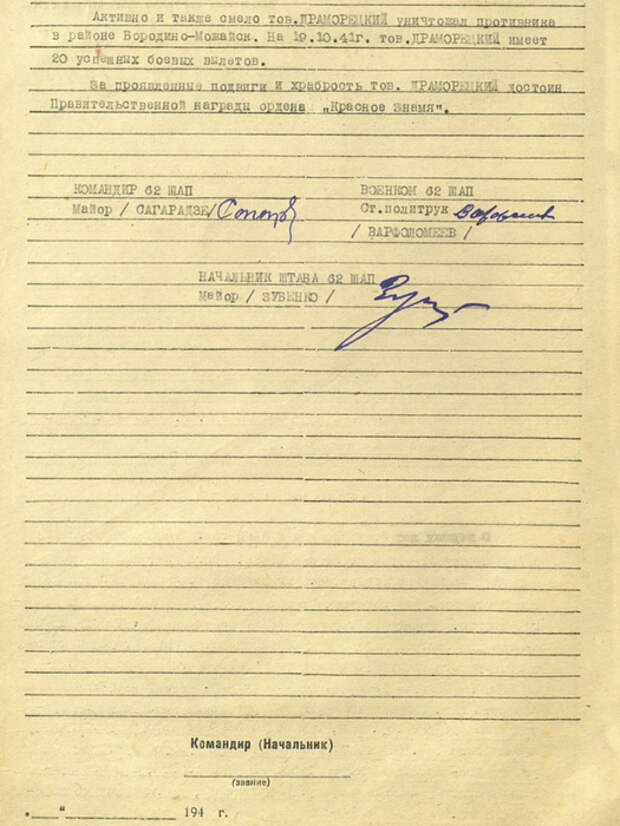 Активно и также смело тов.ДРАМОРЕЦКИЙ уничтожал противника
в районе Бородино-Можайск. На 19.10.41г. тов.ДРАМОРЕЦКИЙ имеет
20 успешных боевых вылетов.
За проявленные подвиги и храбрость тов. ДРАМОРЕЦКИЙ достоин
Правительственной награды ордена „Красное Знамя".
КОМАНДИР 62 ШАП
Майор / САГАРАДЗЕ/
ВОЕНКОМ 62 ШАП
Ст.политрук
/ ВАРФОЛОМЕЕВ /
НАЧАЛЬНИК ШТАБА 62 ШАП
Майор / ЗУБЕНКО /
Командир (Начальник)
(звание)
„___"____________ 194 г.